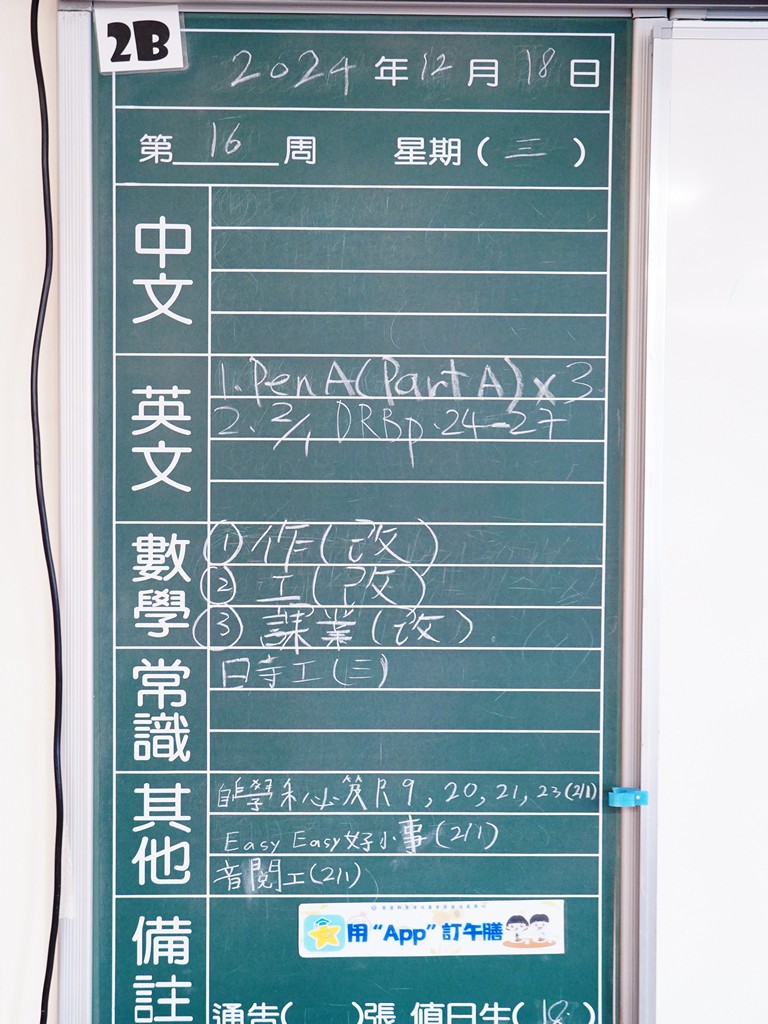 2B
2024 年 12 月 18 日
第 16 周 星期 ( 三 )
中文
英文
1. Pen A (Part A) x 3
2. 2/1 DRB p.24-27
數學
① 作 (改)
② 工 (改)
③ 課業 (改)
常識
時工 (三)
其他
自學 P.9, 20, 21, 23 (2/1)
Easy Easy 好小事 (2/1)
音閱工 (2/1)
備註
用 “App” 訂午膳
通告( )張 值日生( 18 )